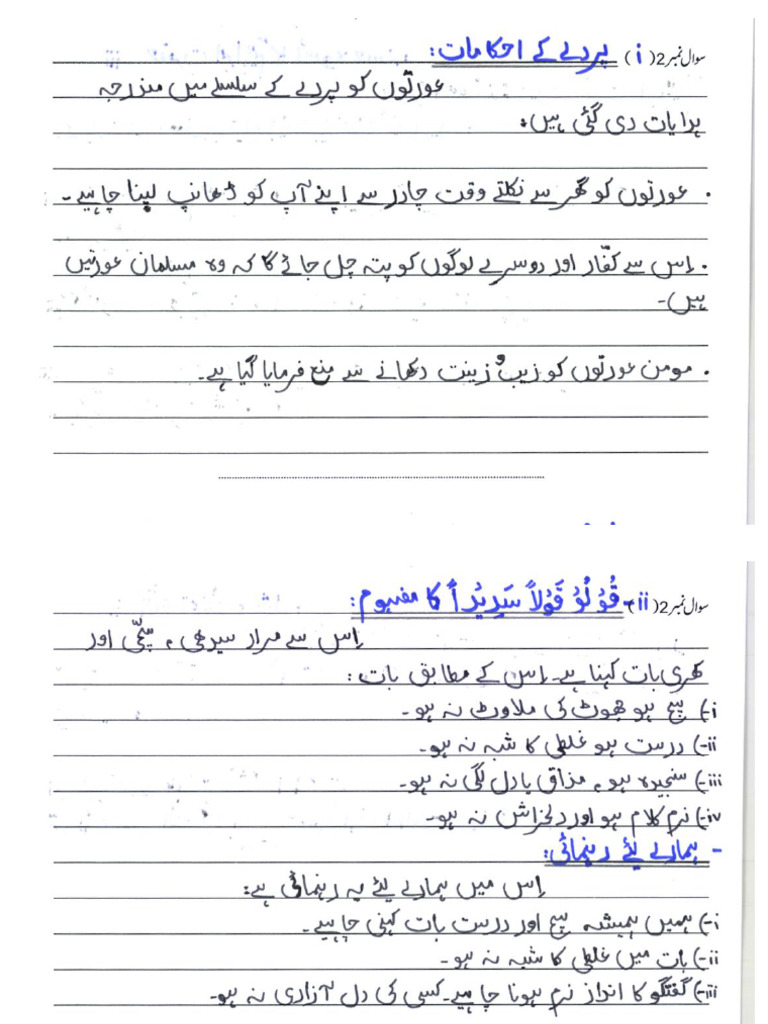 سوال نمبر 2 (i) پردے کے احکامات:
عورتوں کو پردے کے سلسلے میں مندرجہ
ہدایات دی گئی ہیں:
• عورتوں کو گھر سے نکلتے وقت چادر سے اپنے آپ کو ڈھانپ لینا چاہیے۔
• اِس سے کفّار اور دوسرے لوگوں کو پتہ چل جائے گا کہ وہ مسلمان عورتیں
ہیں۔
• مومن عورتوں کو زیب و زینت دکھانے سے منع فرمایا گیا ہے۔
سوال نمبر 2 (ii) - قُوْلُوْ قَوْلاً سَدِیْداً کا مفہوم:
اِس سے مراد سیدھی، سچّی اور
کھری بات کہنا ہے۔ اِس کے مطابق بات:
i-) سچ ہو جھوٹ کی ملاوٹ نہ ہو۔
ii-) درست ہو غلطی کا شبہ نہ ہو۔
iii-) سنجیدہ ہو، مذاق یا دل لگی نہ ہو۔
iv-) نرم کلام ہو اور دلخراش نہ ہو۔
- ہمارے لئے رہنمائی:
اِس میں ہمارے لئے یہ رہنمائی ہے:
i-) ہمیں ہمیشہ سچ اور درست بات کہنی چاہیے۔
ii-) بات میں غلطی کا شبہ نہ ہو۔
iii-) گفتگو کا انداز نرم ہونا چاہیے۔ کسی کی دل آزاری نہ ہو۔